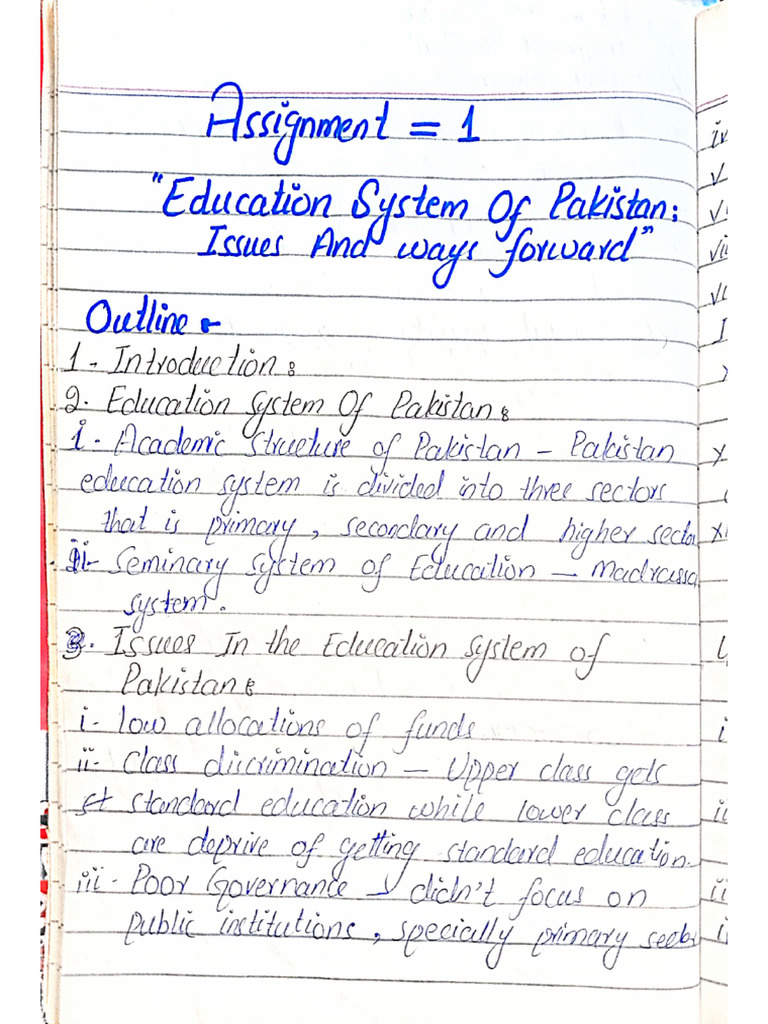 Assignment = 1
"Education System Of Pakistan:
Issues And ways forward"
Outline :-
1- Introduction :
2. Education System Of Pakistan :
i- Academic structure of Pakistan - Pakistan
education system is divided into three sectors
that is primary, secondary and higher secto
ii- Seminary system of Education - Madrassa
system.
3. Issues In the Education system of
Pakistan :
i- low allocations of funds
ii- class discrimination - Upper class gets
st standard education while lower class
are deprive of getting standard education.
iii- Poor Governance → didn't focus on
public institutions, specially primary secto
iv
v
vi
vii
i
ii